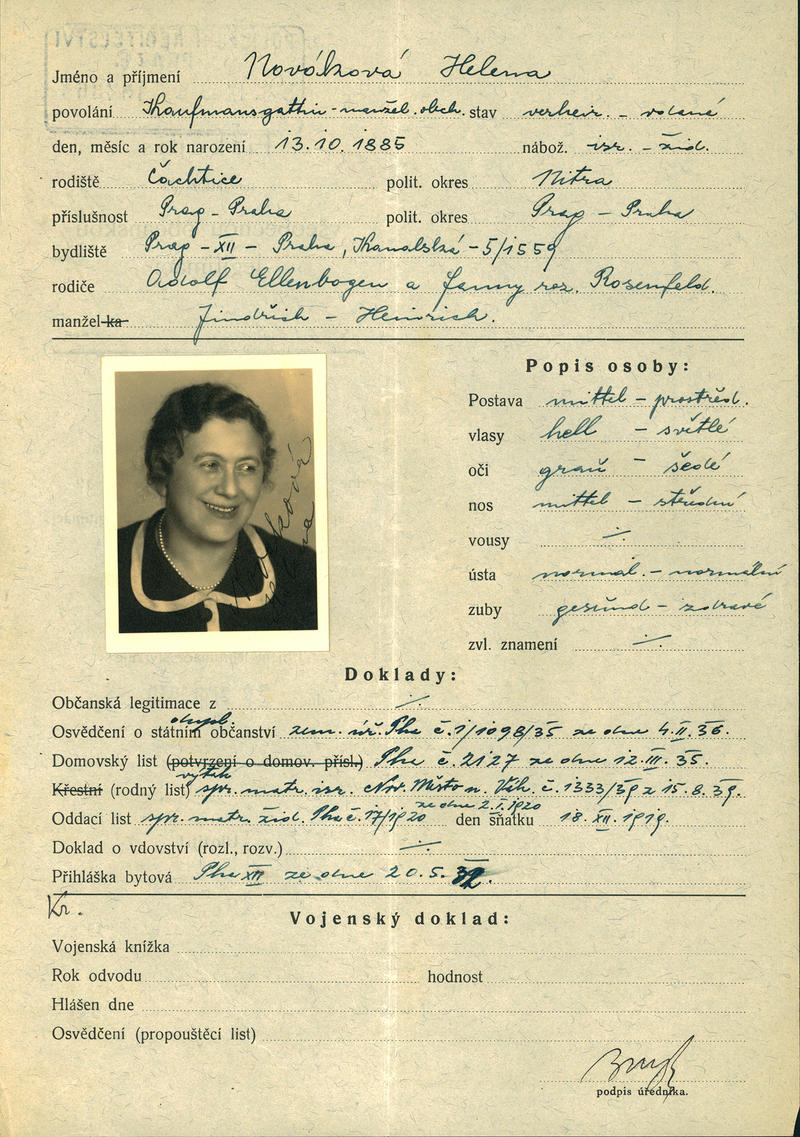 Jméno a příjmení Nováková Helena
povolání Kaufmansgattin - manžel. obch. stav verheir. - vdaná
den, měsíc a rok narození 13.10.1885 nábož. isr. - žid.
rodiště Čachtice polit. okres Nitra
příslušnost Prag - Praha polit. okres Prag - Praha
bydliště Prag - XII - Praha, Kanalská - 5/1559
rodiče Adolf Ellenbogen a Fanny roz. Rosenfeld.
manžel-ka Jindřich - Heinrich.
Popis osoby:
Postava mittel - prostřed.
vlasy hell - světlé
oči grau - šedé
nos mittel - střední
vousy ·/·
ústa normal. - normální
zuby gesund - zdravé
zvl. znamení ·/·
Nováková
Doklady:
Občanská legitimace z ·/·
dupl.
Osvědčení o státním občanství zem. úř. Pha č. 1/1098/35 ze dne 4.II.36.
Domovský list (potvrzení o domov. přísl.) Pha č. 2127 ze dne 12.III.35.
výtah
Křestní (rodný list) spr. matr. isr. Nov. Město n. Váh. č. 1333/39 z 15.8.39.
ze dne 2.1.1920
Oddací list spr. matr. žid. Pha č. 17/1920 den sňatku 18.XII.1919.
Doklad o vdovství (rozl., rozv.) ·/·
Přihláška bytová Pha XII ze dne 20.5.
Kr.
Vojenský doklad:
Vojenská knížka
Rok odvodu hodnost
Hlášen dne
Osvědčení (propouštěcí list)
podpis úředníka.